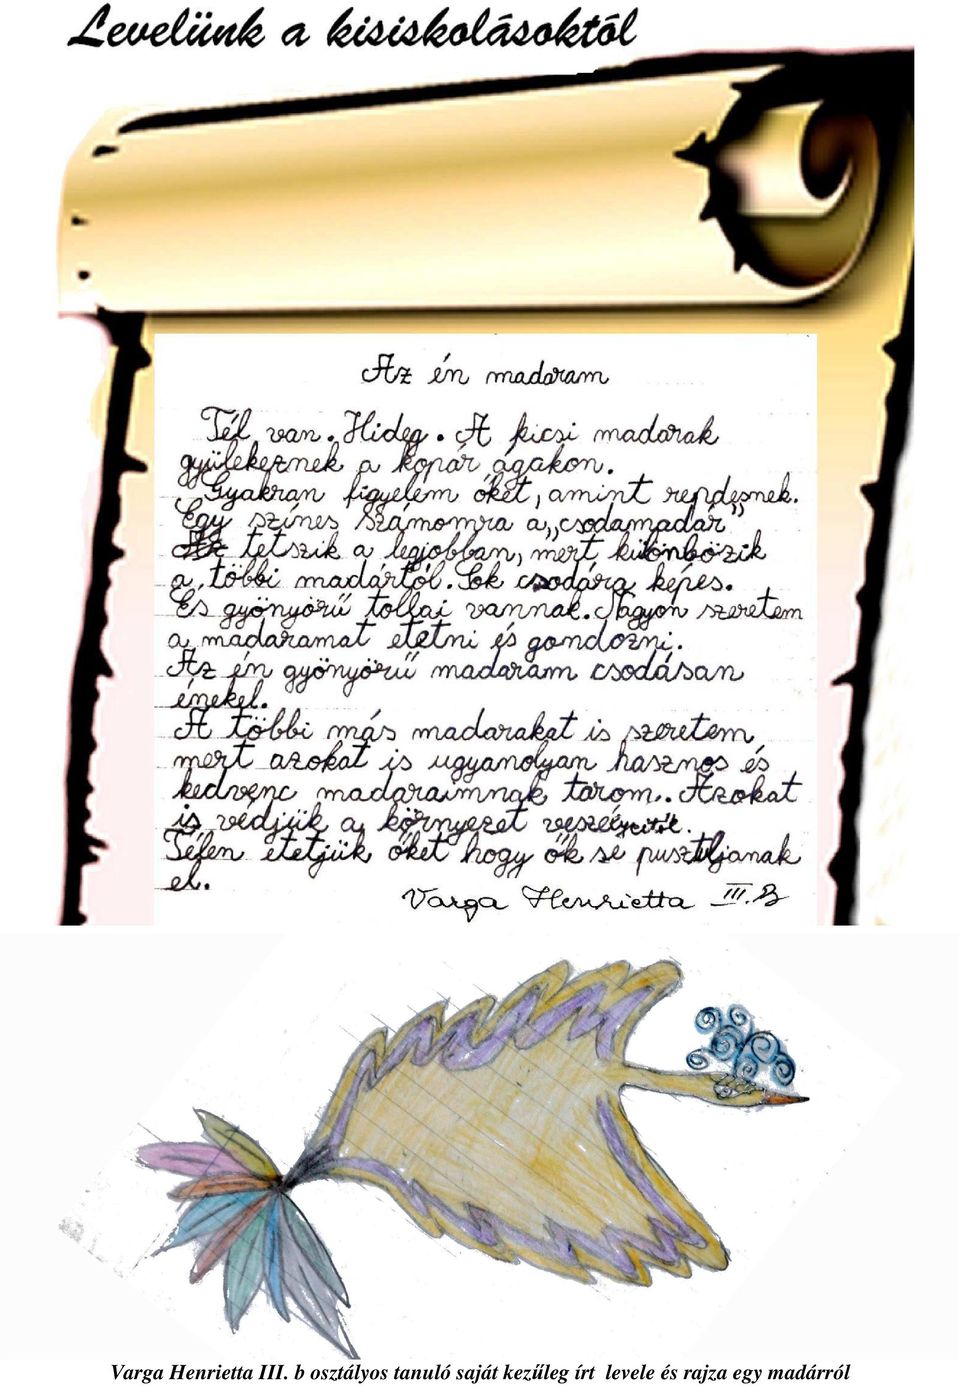 Levelünk a kisiskolásoktól
Az én madaram
Tél van. Hideg. A kicsi madarak
gyülekeznek a kopár ágakon.
Gyakran figyelem őket, amint repdesnek.
Egy színes számomra a „csodamadár”
Az tetszik a legjobban, mert különbözik
a többi madártól. Sok csodára képes.
És gyönyörű tollai vannak. Nagyon szeretem
a madaramat etetni és gondozni.
Az én gyönyörű madaram csodásan
énekel.
A többi más madarakat is szeretem
mert azokat is ugyanolyan hasznos és
kedvenc madaraimnak tarom.. Azokat
is védjük a környezet veszélyeitől.
Télen etetjük őket hogy ők se pusztuljanak
el.
Varga Henrietta III. B
Varga Henrietta III. b osztályos tanuló saját kezűleg írt levele és rajza egy madárról